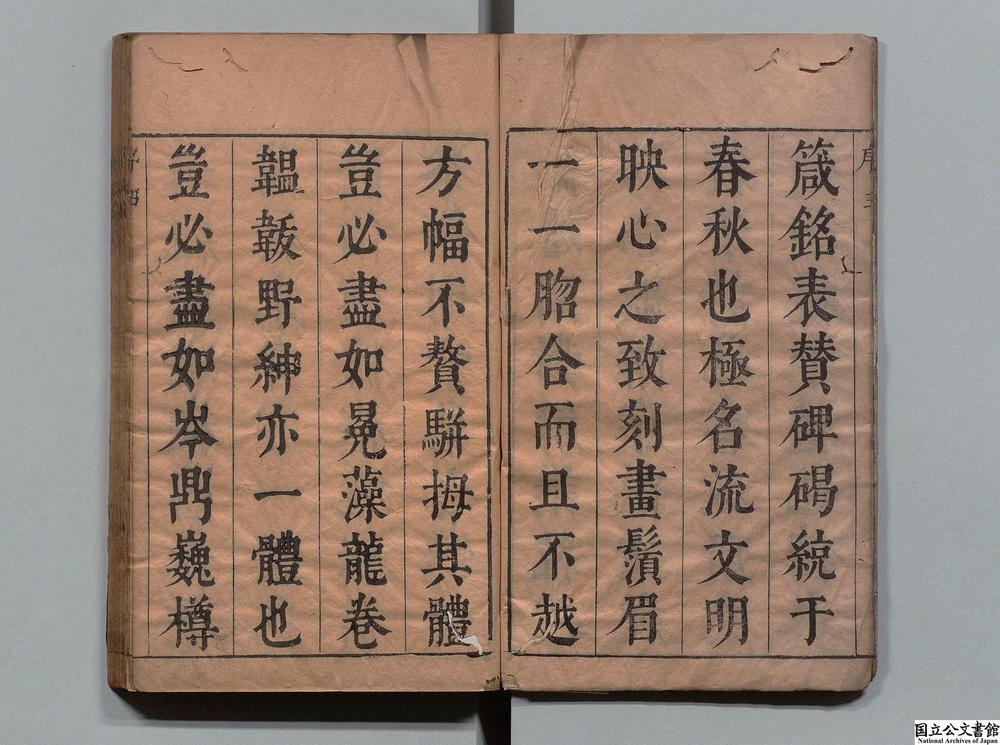 箴銘表賛碑碣統于
春秋也極名流文明
映心之致刻畫鬚眉
一一胊合而且不越
方幅不贅駢拇其體
豈必盡如冕藻龍卷
韞韍野紳亦一體也
豈必盡如岑鼎巍樽
国立公文書館
National Archives of Japan